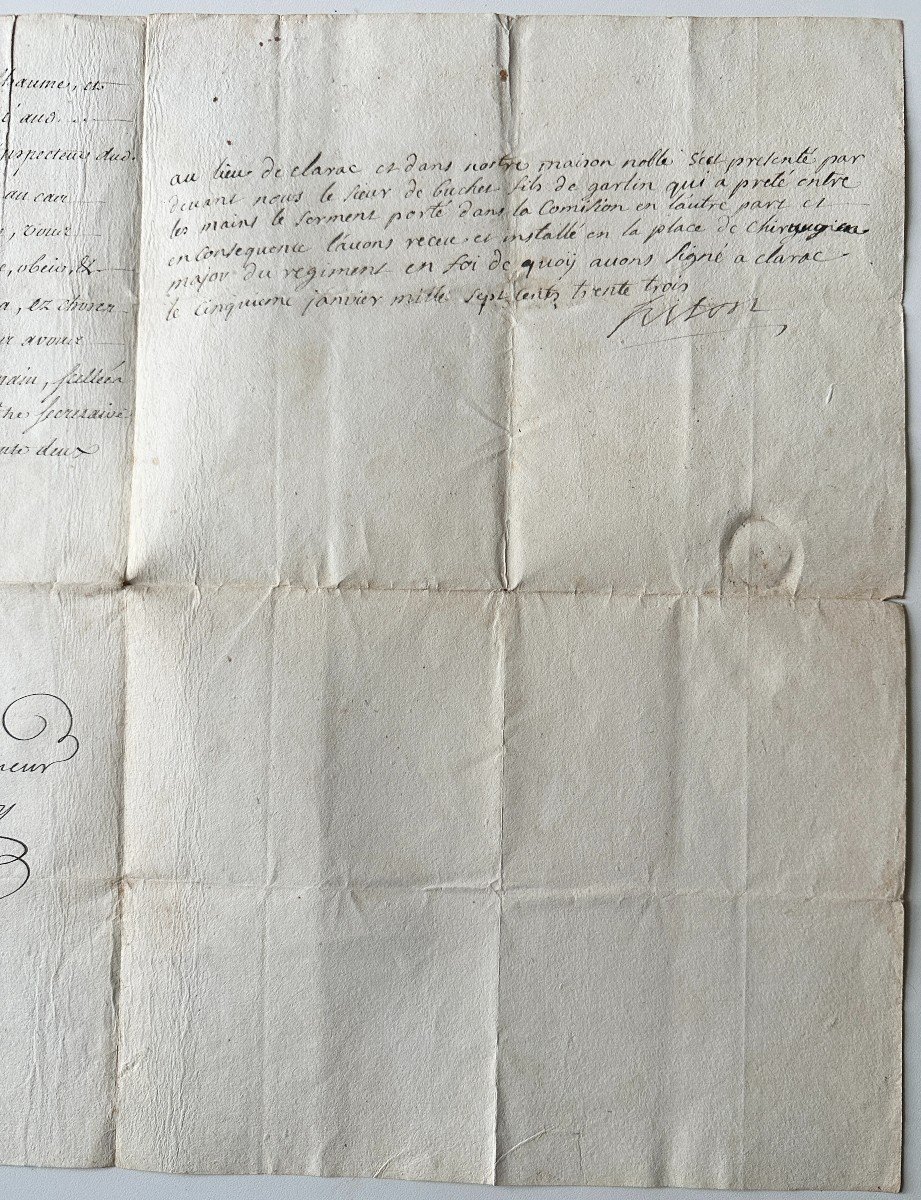 haume, et
é aud
nspecteur dud.
au cas
, vour
e, obeir, &
a, ez choser
ur avoir
main, scellée
che secretaire
nte deux
neur
y
au lieu de clarac et dans nostre maison noble s'est presenté par
devant nous le sieur de buchet fils de garlin qui a preté entre
les mains le serment porté dans la Comision en lautre part et
en consequence l'avons receu et installé en la place de chirurgien
major du regiment en foi de quoij avons signé a clarac
le cinquieme janvier mille sept cents trente trois